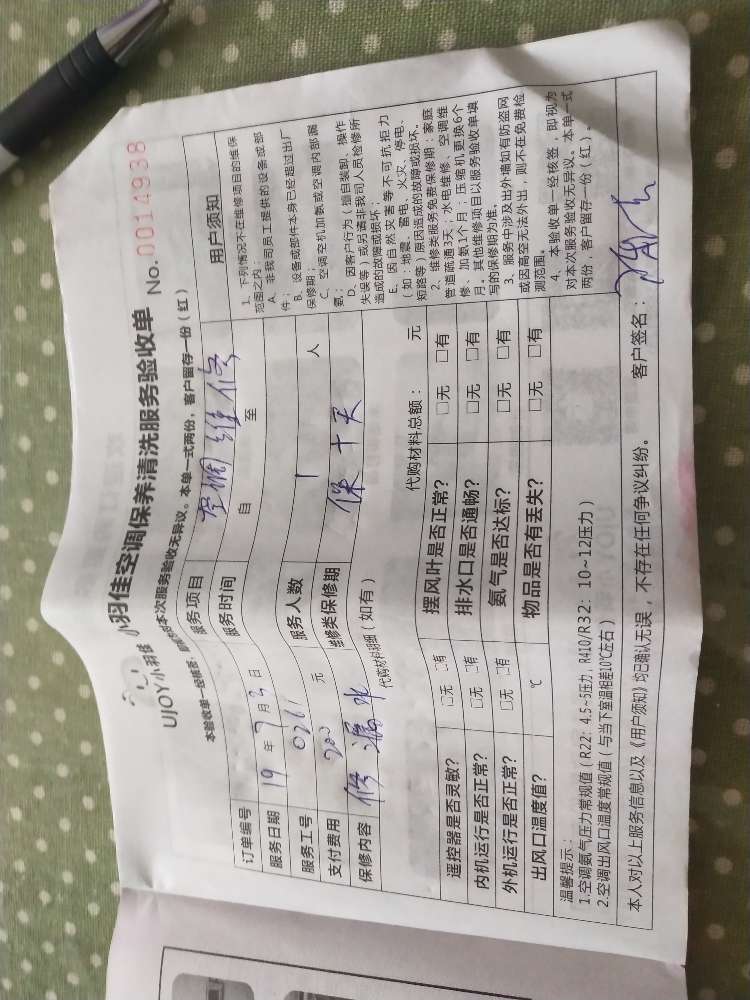 小羽佳空调保养清洗服务验收单 No. 0014938
UJOY小羽佳
本次服务验收无异议。本单一式两份，客户留存一份（红）
订单编号 服务项目 空调维修
服务日期 19年7月3日 服务时间 自 至
服务工号 服务人数 1 人
支付费用 200 元 维修类保修期 保十天
保修内容 修漏水
代购材料明细（如有） 代购材料总额： 元
遥控器是否灵敏？ □无 □有 摆风叶是否正常？ □无 □有
内机运行是否正常？ □无 □有 排水口是否通畅？ □无 □有
外机运行是否正常？ □无 □有 氨气是否达标？ □无 □有
出风口温度值？ ℃ 物品是否有丢失？ □无 □有
用户须知
1、下列情况不在维修项目的维保
范围之内：
A、非我司员工提供的设备或部
件；
B、设备或部件本身已经超过出厂
保修期；
C、空调空机加氨或空调内部漏
氨；
D、因客户行为（擅自装卸、操作
失误等）或另请非我司人员检修所
造成的故障或损坏；
E、因自然灾害等不可抗拒力
（如：地震、雷电、火灾、停电、
短路等）原因造成的故障或损坏。
2、维修类服务免费保修期：家庭
管道疏通3天；水电维修、空调维
修、加氨1个月；压缩机更换6个
月。其他维修项目以服务验收单填
写的保修期为准。
3、服务中涉及出外墙如有防盗网
或因高空无法外出，则不在免费检
测范围。
4、本验收单一经核签，即视为
对本次服务验收无异议。本单一式
两份，客户留存一份（红）。
温馨提示：
1.空调氨气压力常规值（R22：4.5~5压力，R410/R32：10~12压力）
2.空调出风口温度常规值（与当下室温相差10℃左右）
本人对以上服务信息以及《用户须知》均已确认无误，不存在任何争议纠纷。 客户签名：